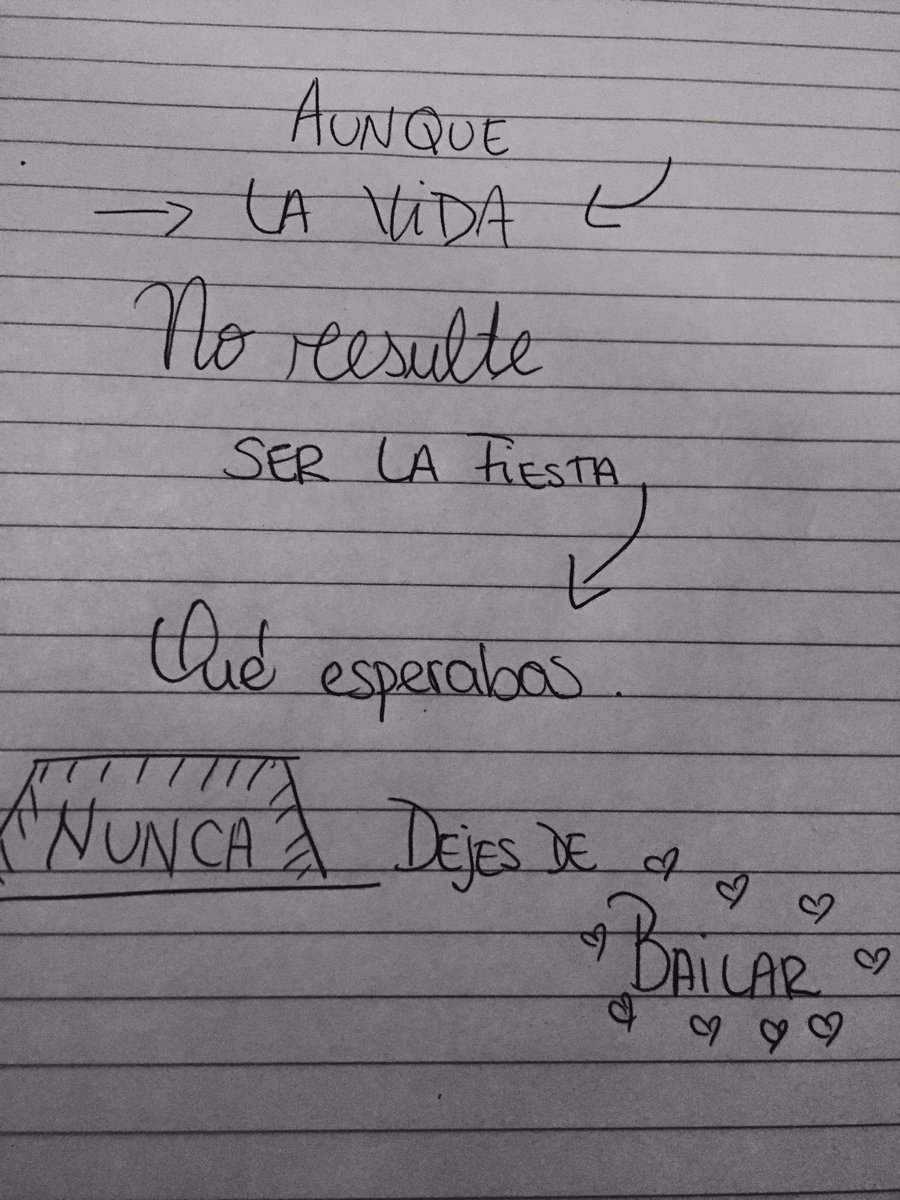 AUNQUE
LA ViDA
No resulte
SER LA FiESTA
Qué esperabas.
NUNCA DEjES DE
BAiLAR